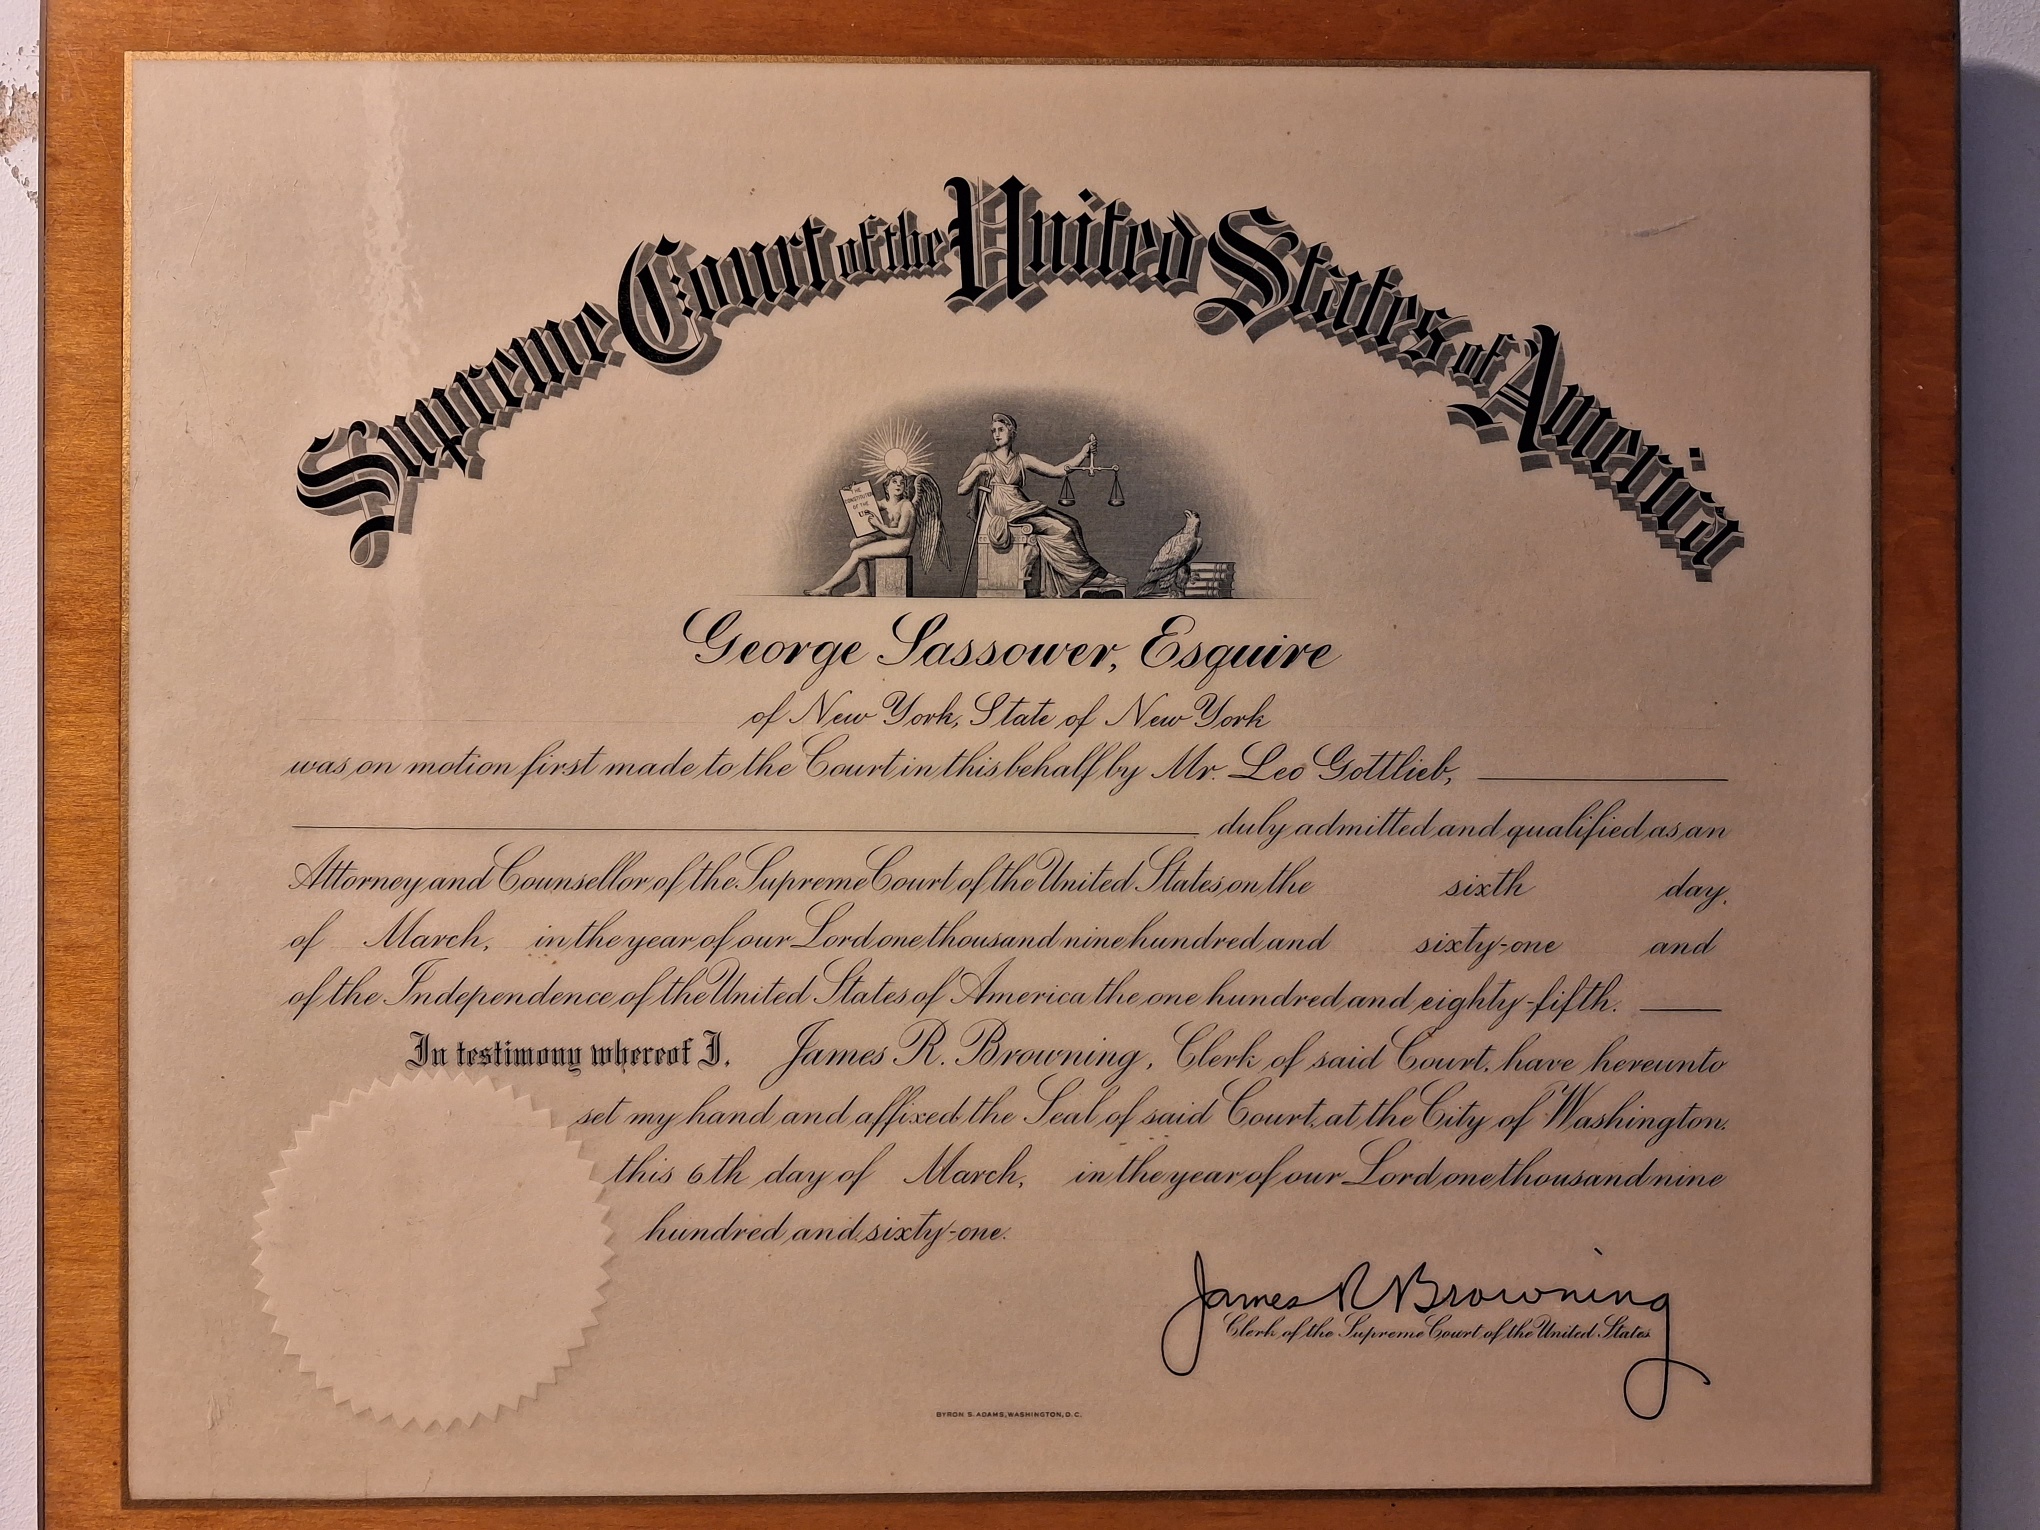 Supreme Court of the United States of America
THE
CONSTITUTION
OF THE
U.S.
George Sassower, Esquire
of New York, State of New York
was on motion first made to the Court in this behalf by Mr. Leo Gottlieb,
duly admitted and qualified as an
Attorney and Counsellor of the Supreme Court of the United States on the sixth day,
of March, in the year of our Lord one thousand nine hundred and sixty-one and
of the Independence of the United States of America the one hundred and eighty-fifth.
In testimony whereof I, James R. Browning, Clerk of said Court, have hereunto
set my hand and affixed the Seal of said Court, at the City of Washington.
this 6th day of March, in the year of our Lord one thousand nine
hundred and sixty-one.
James R Browning
Clerk of the Supreme Court of the United States
BYRON S. ADAMS, WASHINGTON, D.C.